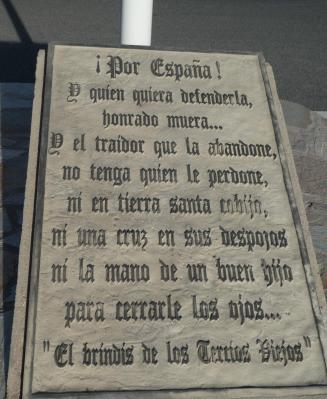 ¡Por España!
Y quien quiera defenderla,
honrado muera...
Y el traidor que la abandone,
no tenga quien le perdone,
ni en tierra santa cobijo,
ni una cruz en sus despojos
ni la mano de un buen hijo
para cerrarle los ojos...
"El brindis de los Tercios Viejos"